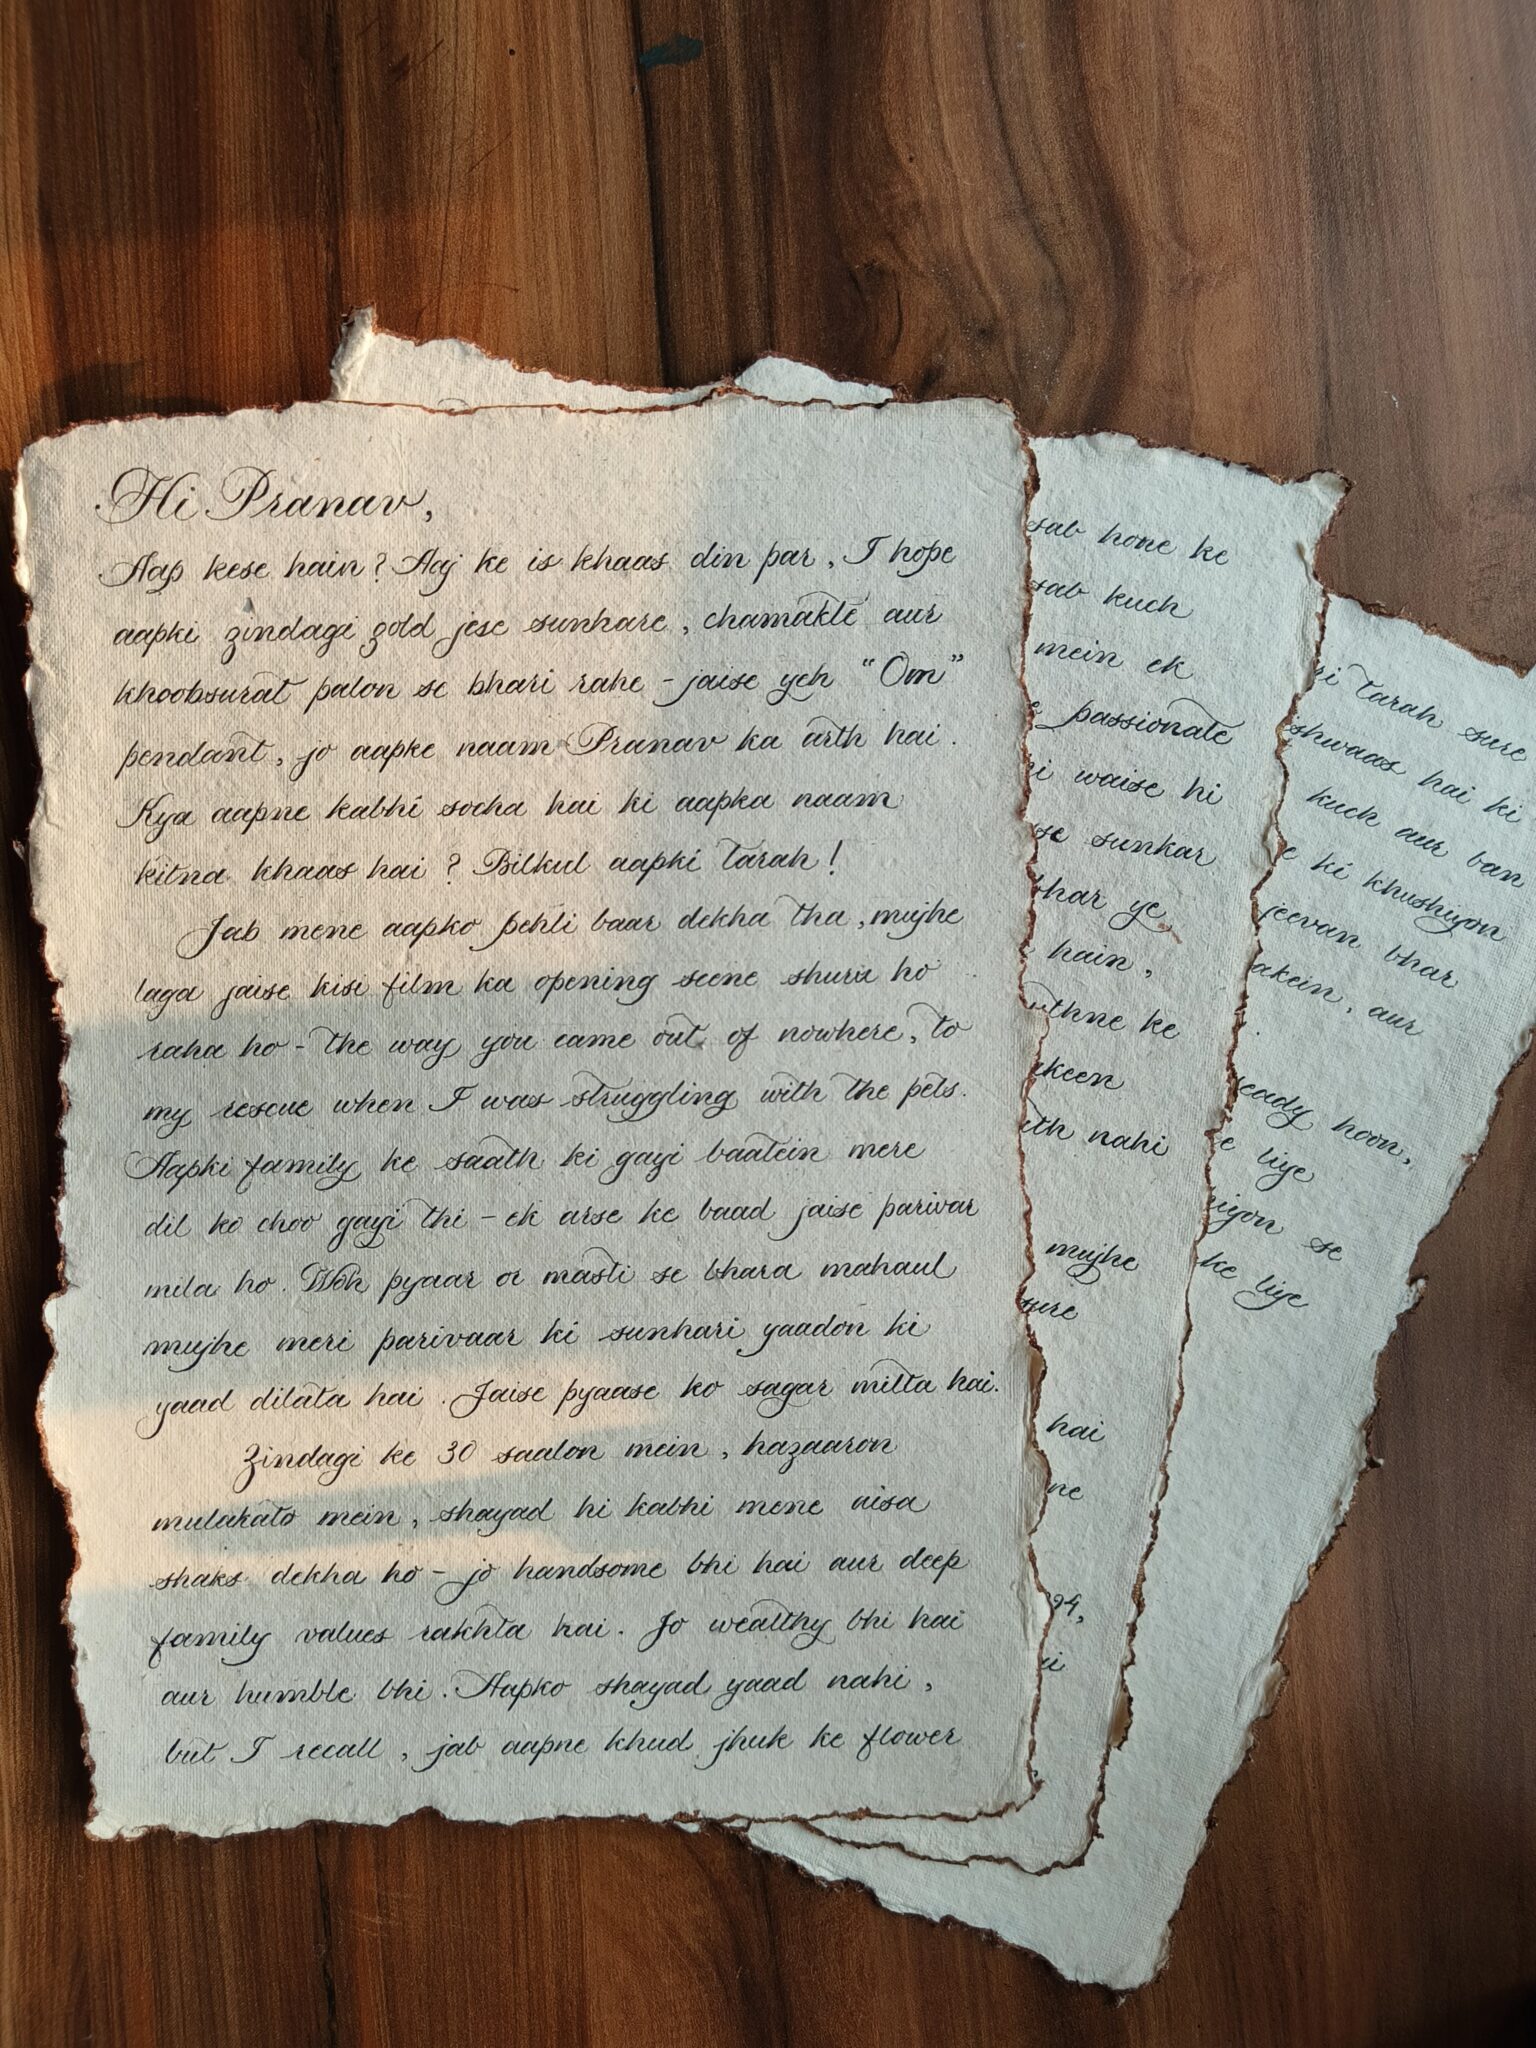 Hi Pranav,
Aap kese hain? Aaj ke is khaas din par, I hope
aapki zindagi gold jese sunhare, chamakte aur
khoobsurat palon se bhari rahe - jaise yeh "Om"
pendant, jo aapke naam Pranav ka arth hai.
Kya aapne kabhi socha hai ki aapka naam
kitna khaas hai? Bilkul aapki tarah!
Jab mene aapko pehli baar dekha tha, mujhe
laga jaise kisi film ka opening scene shuru ho
raha ho - the way you came out of nowhere, to
my rescue when I was struggling with the pets.
Aapki family ke saath ki gayi baatein mere
dil ko choo gayi thi - ek arse ke baad jaise parivar
mila ho. Woh pyaar or masti se bhara mahaul
mujhe meri parivaar ki sunhari yaadon ki
yaad dilata hai. Jaise pyaase ko sagar milta hai.
Zindagi ke 30 saalon mein, hazaaron
mulakato mein, shayad hi kabhi mene aisa
shaks dekha ho - jo handsome bhi hai aur deep
family values rakhta hai. Jo wealthy bhi hai
aur humble bhi. Aapko shayad yaad nahi,
but I recall, jab aapne khud jhuk ke flower
sab hone ke
sab kuch
mein ek
passionate
waise hi
sunkar
bhar ye
hain,
ke
nahi
mujhe
hai
tarah sure
hai ki
kuch aur ban
ki khushiyon
jeevan bhar
aur
hoon,
liye
se
ke liye